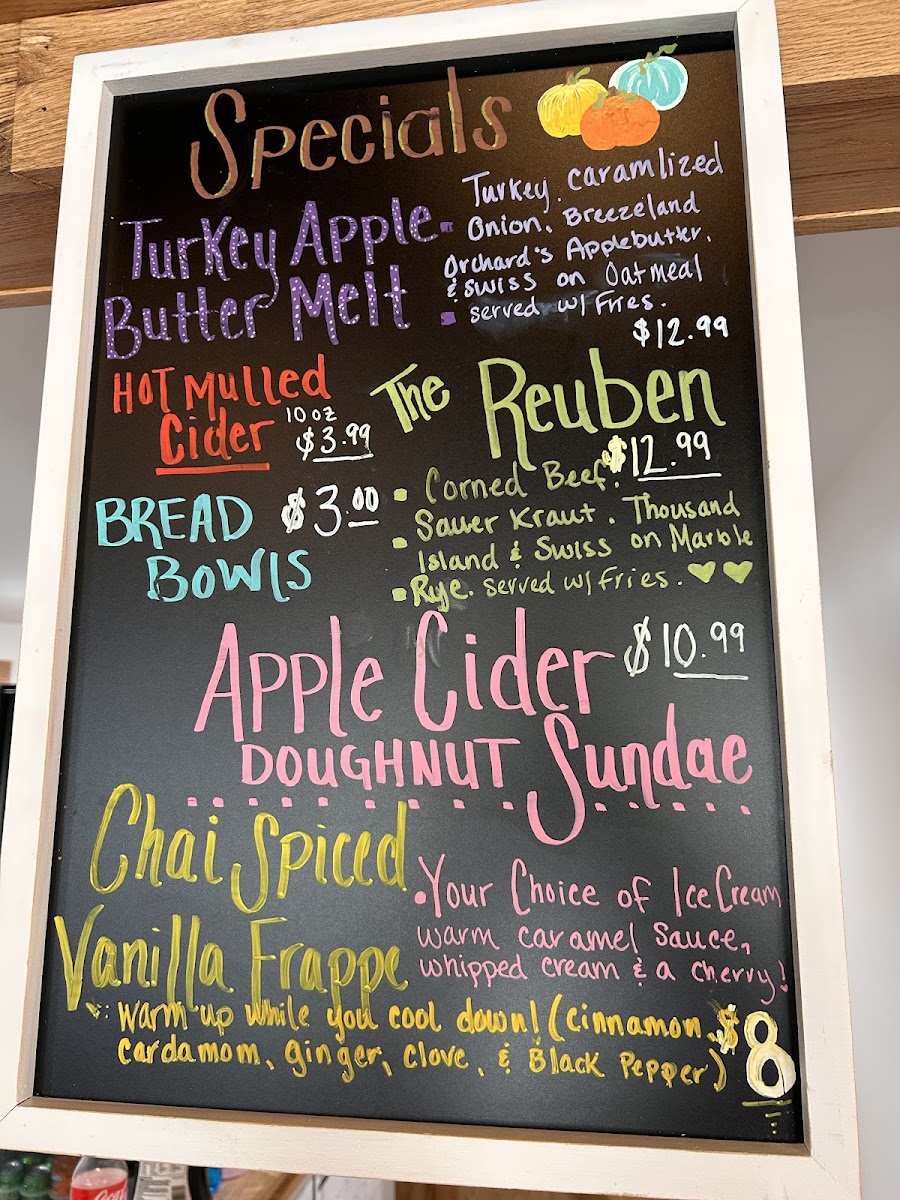 Specials
Turkey Apple
Butter Melt
Turkey, caramlized
Onion, Breezeland
Orchard's Applebutter,
& Swiss on Oatmeal
served w/ Fries.
$12.99
HOT Mulled
Cider
10 oz
$3.99
The Reuben
$12.99
Corned Beef,
Sauer Kraut, Thousand
Island & Swiss on Marble
Rye. served w/ fries.
BREAD
BOWls
$3.00
Apple Cider
DOUGHNUT Sundae
$10.99
Your Choice of Ice Cream
warm caramel sauce,
whipped cream & a cherry!
Chai Spiced
Vanilla Frappe
warm up while you cool down! (cinnamon,
cardamom, ginger, clove, & Black Pepper)
$8